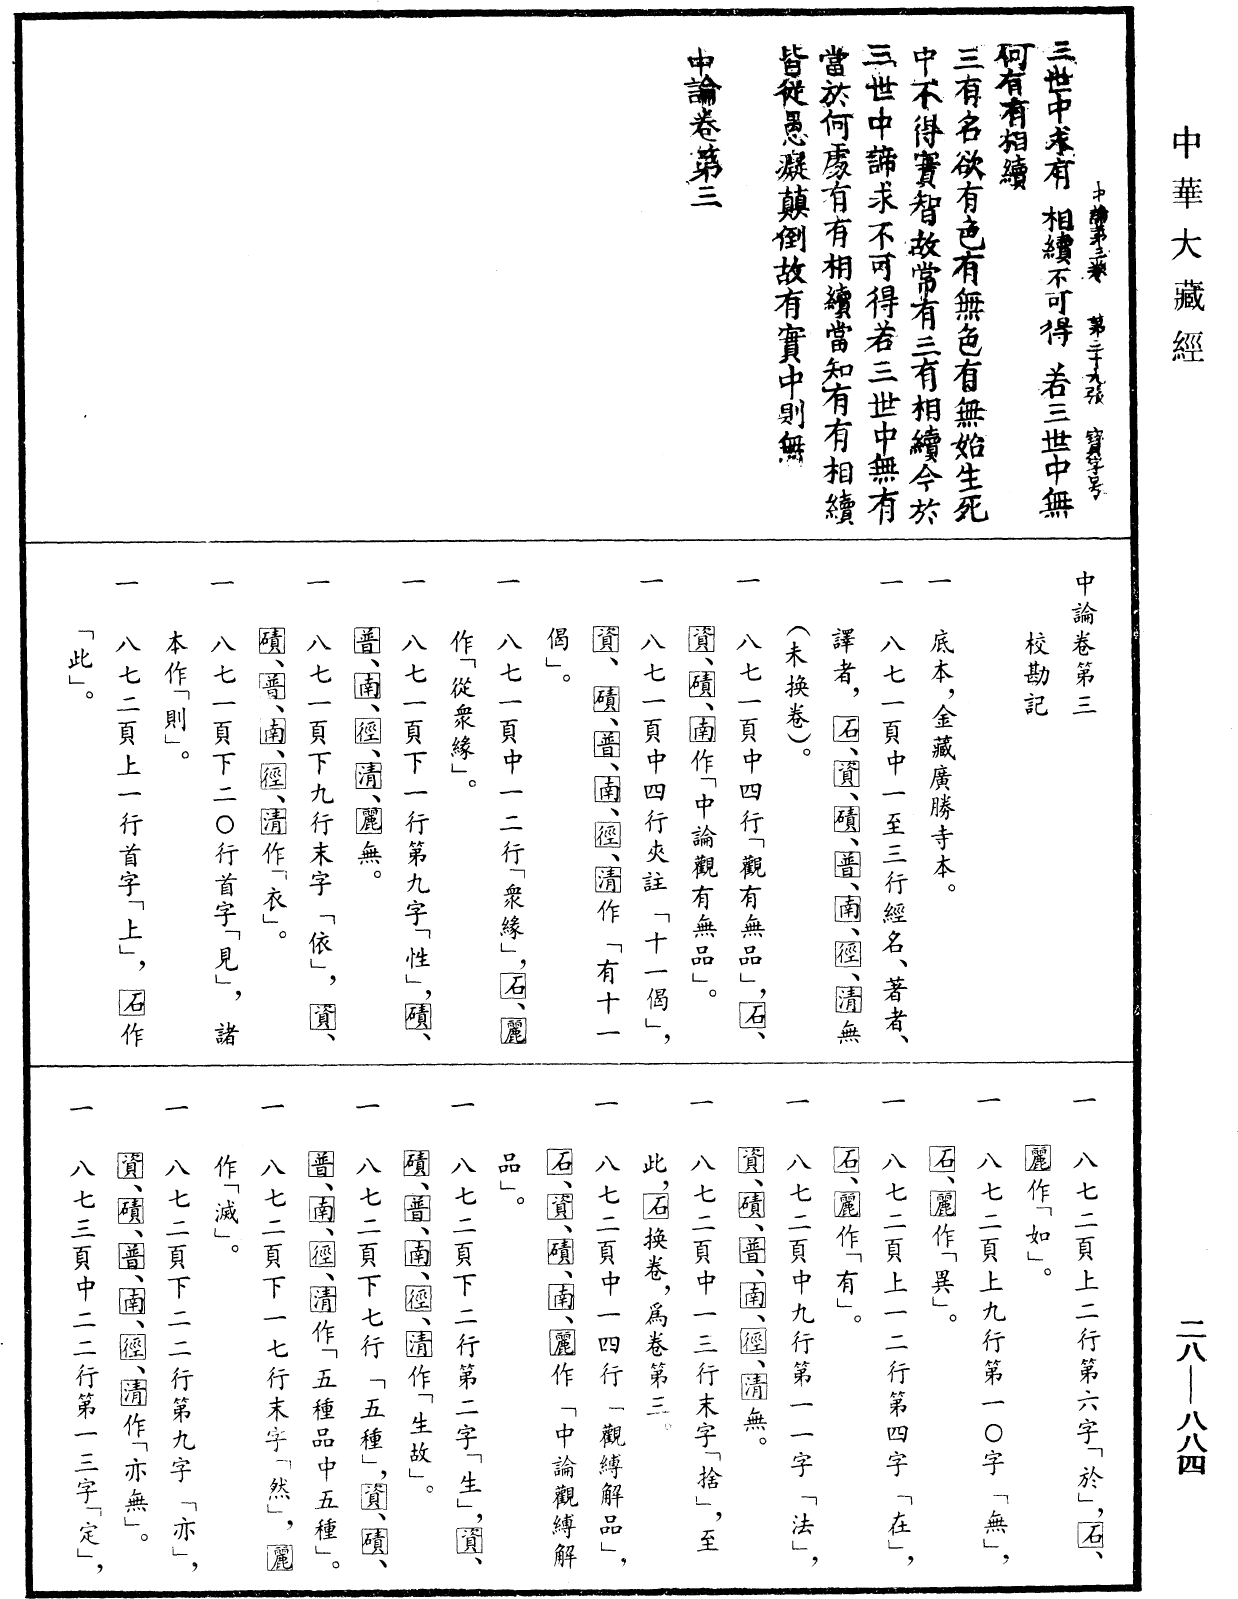 中華大藏經
中論第三卷 第二十九張 寶字号
三世中求有 相續不可得 若三世中無
何有有相續
三有名欲有色有無色有無始生死
中不得實智故常有三有相續今於
三世中諦求不可得若三世中無有
當於何處有有相續當知有有相續
皆從愚癡顛倒故有實中則無
中論卷第三
中論卷第三
校勘記
一 底本，金藏廣勝寺本。
一 八七一頁中一至三行經名、著者、
譯者，石、資、磧、普、南、徑、清無
（未換卷）。
一 八七一頁中四行「觀有無品」，石、
資、磧、南作「中論觀有無品」。
一 八七一頁中四行夾註「十一偈」，
資、磧、普、南、徑、清作「有十一
偈」。
一 八七一頁中一二行「衆緣」，石、麗
作「從衆緣」。
一 八七一頁下一行第九字「性」，磧、
普、南、徑、清、麗無。
一 八七一頁下九行末字「依」，資、
磧、普、南、徑、清作「衣」。
一 八七一頁下二〇行首字「見」，諸
本作「則」。
一 八七二頁上一行首字「上」，石作
「此」。
一 八七二頁上二行第六字「於」，石、
麗作「如」。
一 八七二頁上九行第一〇字「無」，
石、麗作「異」。
一 八七二頁上一二行第四字「在」，
石、麗作「有」。
一 八七二頁中九行第一一字「法」，
資、磧、普、南、徑、清無。
一 八七二頁中一三行末字「捨」，至
此，石換卷，爲卷第三。
一 八七二頁中一四行「觀縛解品」，
石、資、磧、南、麗作「中論觀縛解
品」。
一 八七二頁下二行第二字「生」，資、
磧、普、南、徑、清作「生故」。
一 八七二頁下七行「五種」，資、磧、
普、南、徑、清作「五種品中五種」。
一 八七二頁下一七行末字「然」，麗
作「滅」。
一 八七二頁下二二行第九字「亦」，
資、磧、普、南、徑、清作「亦無」。
一 八七三頁中二二行第一三字「定」，
二八—八八四